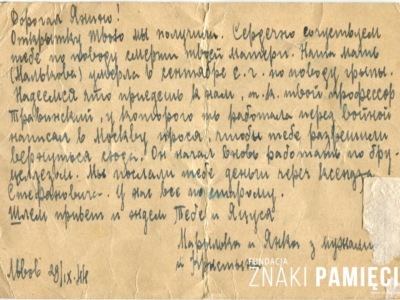 Дорогая Янино!
Открытку твою мы получили. Сердечно сочуствуем
тебе по поводу смерти твоей матери. Наша мать
умерла в сентябре с.г. по поводу грыпы.
Надеемся что приедешь к нам, т.к. твой профессор
у которого ты работала перед войной
написал в Москву прося, чтобы тебе разрешили
вернуться сюда. Он начал вновь работать по бру-
целлезом. Мы послали тебе деньги через Ксендза
Стефановича. У нас все по старому.
Шлем привет и ждем Тебе и Яцуся
и Янка з мужами
и
Львов 29/IX 44
FUNDACJA
ZNAKI PAMIĘCI